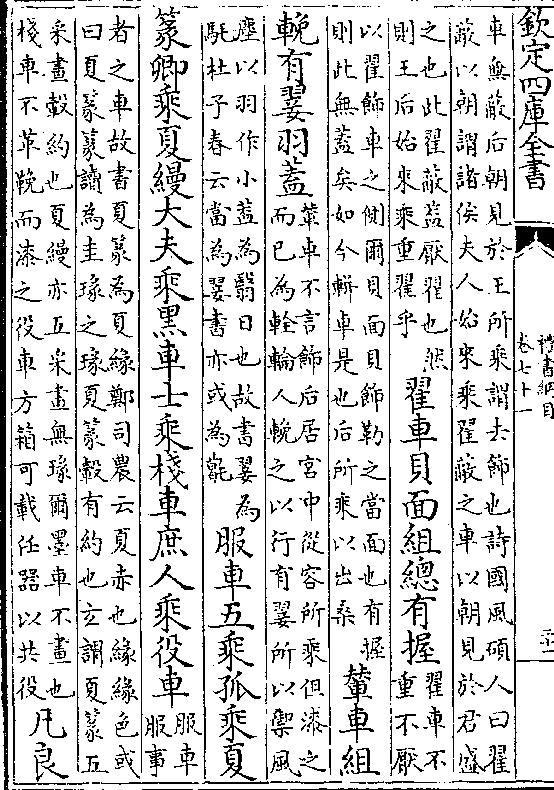 欽定四庫全書
禮書綱目
卷七十一
車無蔽后朝見於王所乘謂去飾也詩國風碩人曰翟
蔽以朝謂諸侯夫人始來乘翟蔽之車以朝見於君盛
之也此翟蔽蓋厭翟也然
則王后始來乘重翟乎
翟車貝面組總有握
翟車不
重不厭
以翟飾車之側爾貝面貝飾勒之當面也有握
則此無蓋矣如今輧車是也后所乘以出桑
輦車組
輓有翣羽蓋
輦車不言飾后居宮中從容所乘但漆之
而已為輇輪人輓之以行有翣所以禦風
塵以羽作小蓋為翳日也故書翣為
馲杜子春云當為翣書亦或為㲨
服車五乘孤乘夏
篆卿乘夏縵大夫乘黑車士乘棧車庶人乘役車
服車
服事
者之車故書夏篆為夏緣鄭司農云夏赤也緣緣色或
曰夏篆篆讀為圭瑑之瑑夏篆轂有約也玄謂夏篆五
采畫轂約也夏縵亦五采畫無瑑爾墨車不畫也
棧車不革輓而漆之役車方箱可載任器以共役
凡良